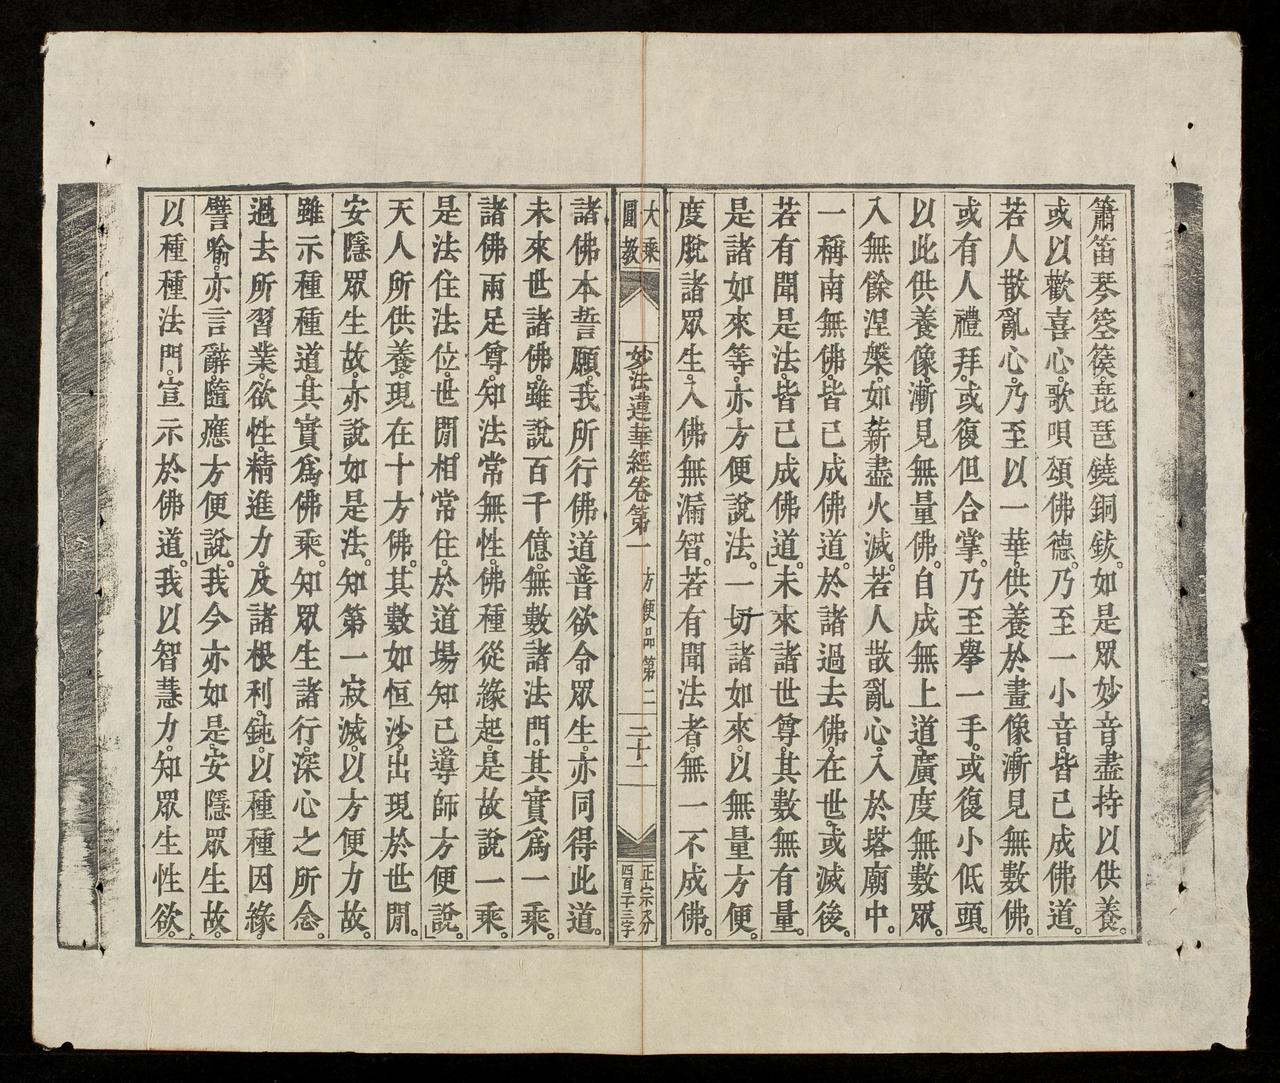 簫笛琴箜篌。琵琶鐃銅鈸。如是眾妙音。盡持以供養。
或以歡喜心。歌唄頌佛德。乃至一小音。皆已成佛道。
若人散亂心。乃至以一華。供養於畫像。漸見無數佛。
或有人禮拜。或復但合掌。乃至舉一手。或復小低頭。
以此供養像。漸見無量佛。自成無上道。廣度無數眾。
入無餘涅槃。如薪盡火滅。若人散亂心。入於塔廟中。
一稱南無佛。皆已成佛道。於諸過去佛。在世或滅後。
若有聞是法。皆已成佛道。」未來諸世尊。其數無有量。
是諸如來等。亦方便說法。一切諸如來。以無量方便。
度脫諸眾生。入佛無漏智。若有聞法者。無一不成佛。
大乘
圓教
妙法蓮華經卷第一 方便品第二 二十二
正宗分
四百二十三字
諸佛本誓願。我所行佛道。普欲令眾生。亦同得此道。
未來世諸佛。雖說百千億。無數諸法門。其實為一乘。
諸佛兩足尊。知法常無性。佛種從緣起。是故說一乘。
是法住法位。世間相常住。於道場知已。導師方便說。」
天人所供養。現在十方佛。其數如恒沙。出現於世間。
安隱眾生故。亦說如是法。知第一寂滅。以方便力故。
雖示種種道。其實為佛乘。知眾生諸行。深心之所念。
過去所習業。欲性精進力。及諸根利鈍。以種種因緣。
譬喻亦言辭。隨應方便說。」我今亦如是。安隱眾生故。
以種種法門。宣示於佛道。我以智慧力。知眾生性欲。